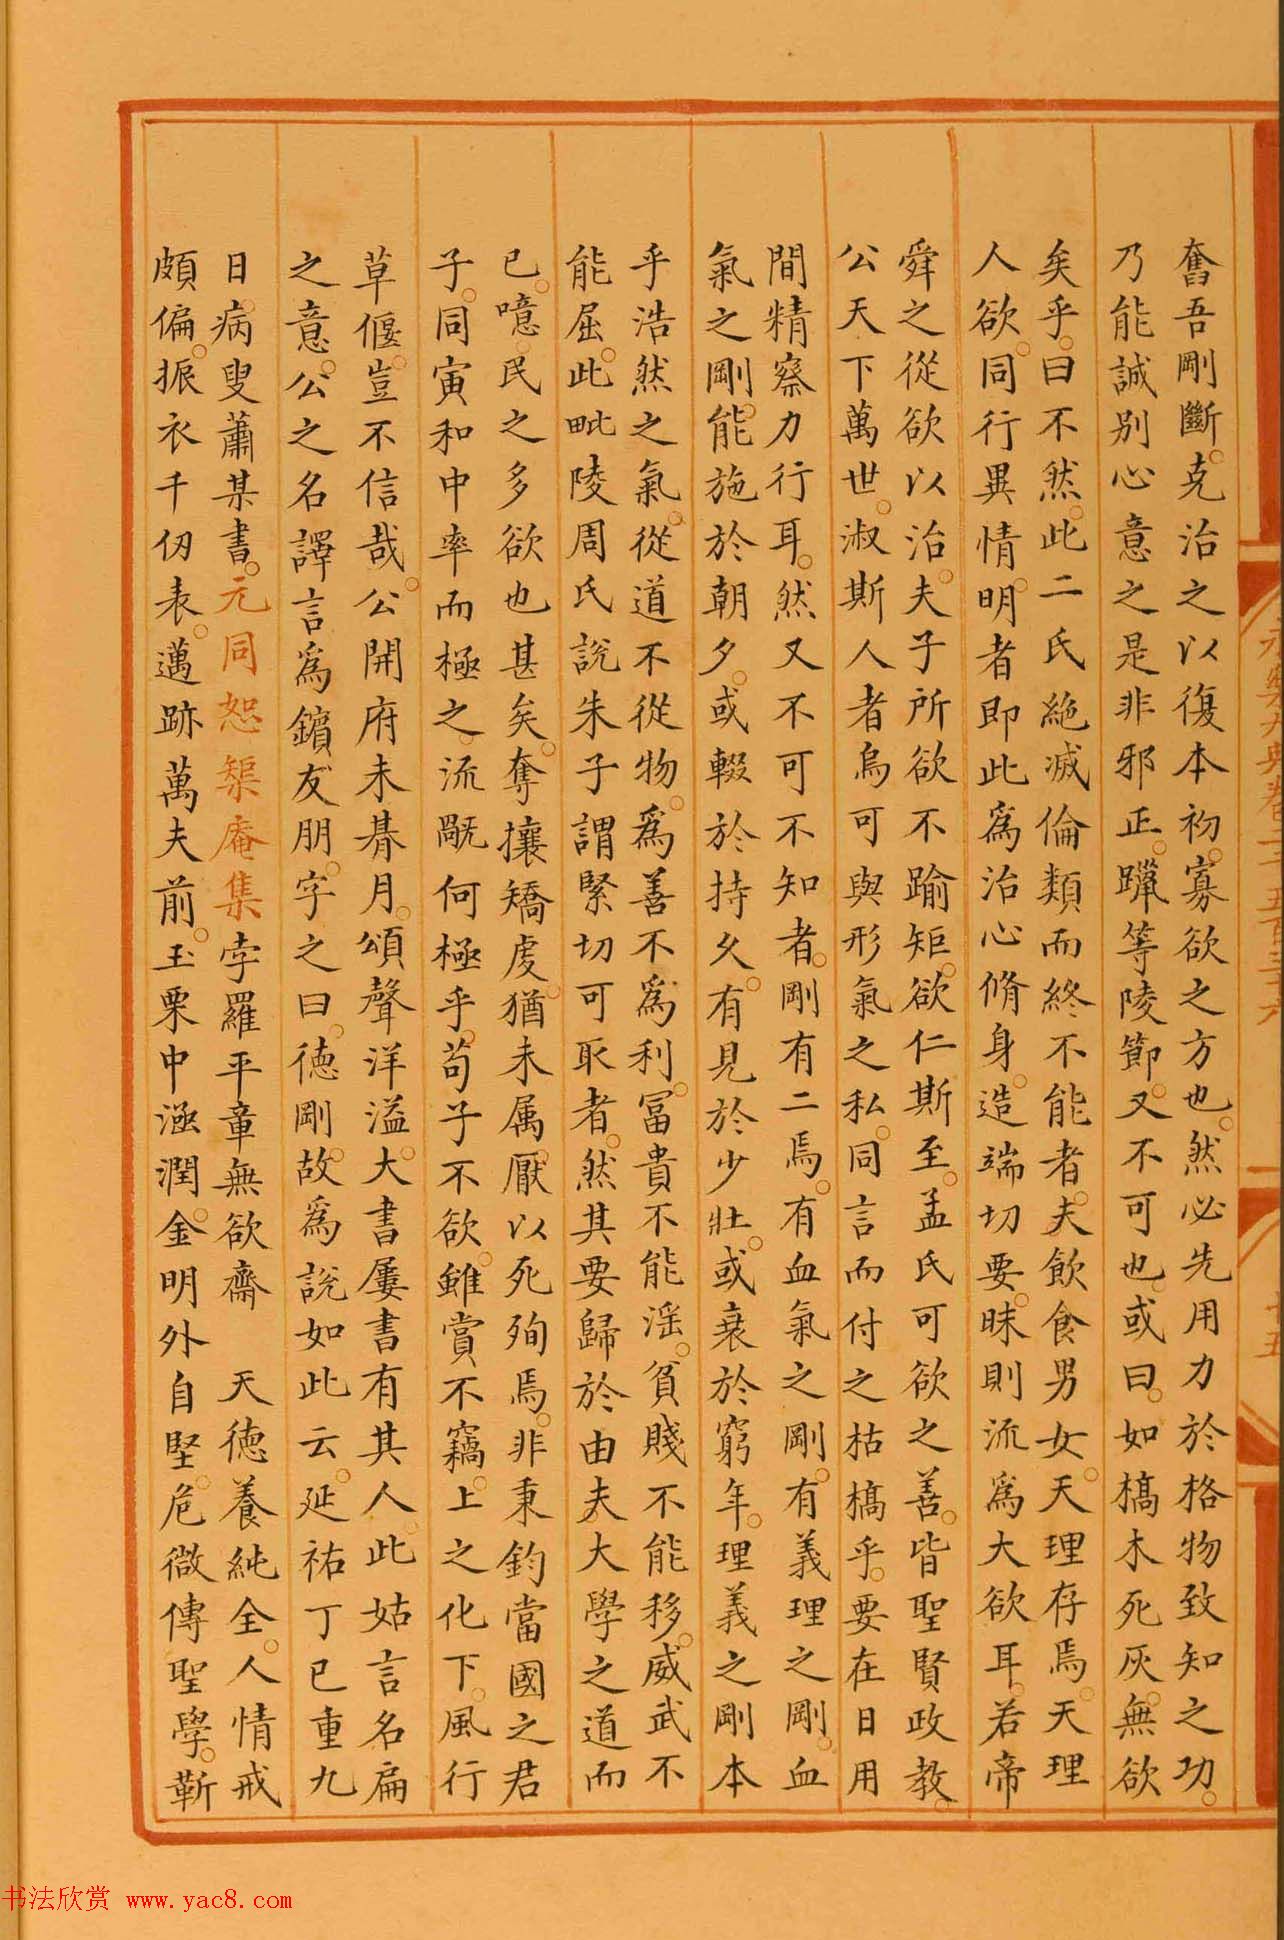 奮吾剛斷。克治之以復本初。寡欲之方也。然必先用力於格物致知之功。
乃能誠别心意之是非邪正。躐等陵節。又不可也。或曰。如槁木死灰。無欲
矣乎。曰不然。此二氏絶滅倫類而終不能者。夫飲食男女。天理存焉。天理
人欲。同行異情。明者即此爲治心脩身。造端切要。昧則流爲大欲耳。若帝
舜之從欲以治。夫子所欲不踰矩。欲仁斯至。孟氏可欲之善。皆聖賢政教。
公天下萬世。淑斯人者烏可與形氣之私。同言而付之枯槁乎。要在日用
間精察力行耳。然又不可不知者。剛有二焉。有血氣之剛。有義理之剛。血
氣之剛。能施於朝夕。或輟於持久。有見於少壯。或衰於窮年。理義之剛本
乎浩然之氣。從道不從物。爲善不爲利。冨貴不能滛。貧賤不能移。威武不
能屈。此毗陵周氏説朱子謂緊切可取者。然其要歸於由夫。大學之道而
已。噫。民之多欲也甚矣。奪攘矯虔。猶未属厭。以死殉焉。非秉鈞當國之君
子。同寅和中率而極之。流毆何極乎。苟子不欲。雖賞不竊。上之化下。風行
草偃。豈不信哉。公開府未朞月。頌聲洋溢。大書屢書有其人。此姑言名扁
之意。公之名譯言爲鑌友朋。字之曰。德剛。故爲説如此云。延祐丁巳重九
日。病叟蕭某書。元同恕榘庵集孛羅平章無欲齋　天德養純全。人情戒
頗偏。振衣千仞表。邁跡萬夫前。玉栗中涵潤。金明外自堅。危微傳聖學。靳
书法欣赏 www.yac8.com